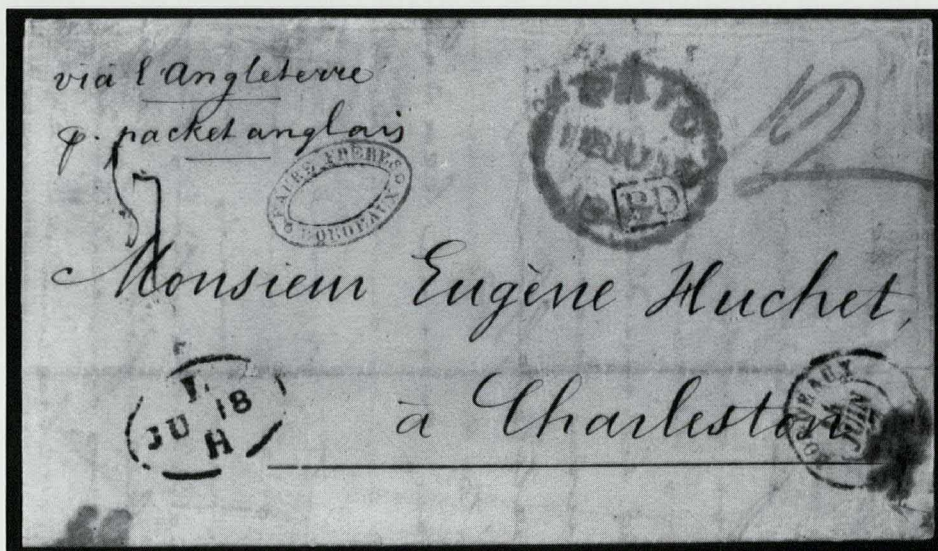 via l'Angleterre
p. packet anglais
FAURE FRÈRES
BORDEAUX
PAID
PD
12
Monsieur Eugène Huchet,
à Charleston
L
JU 18
H
BORDEAUX
JUIN